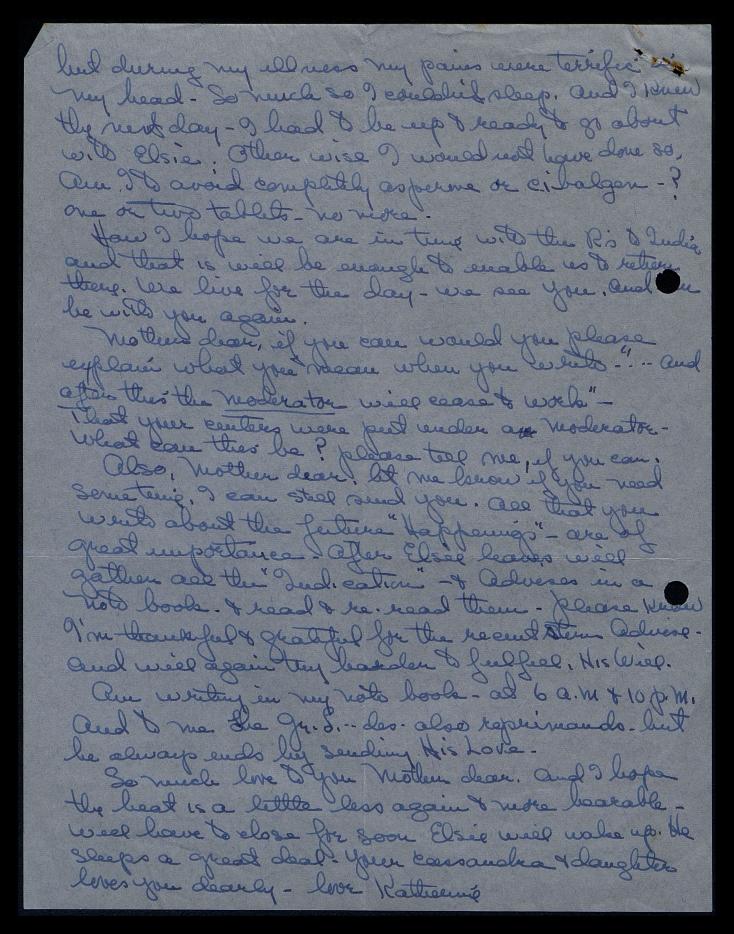 but during my illness my pains were terrific in
my head - So much so I couldn't sleep. and I knew
the next day - I had to be up & ready to go about
with Elsie. Other wise I would not have done so.
Am I to avoid completly asperine or cibalgen - ?
one or two tablets - no more.
How I hope we are in tune with the R's to India
and that is will be enough to enable us to return
there. We live for the day - we see you. and
be with you again.
Mother dear, if you can would you please
explain what you mean when you write - " .. and
after this the moderator will cease to work" -
That your centers were put under a moderator -
What can this be? please tell me, if you can.
Also, Mother dear. let me know if you need
something. I can still send you. All that you
write about the future "Happenings" - are of
great importance - After Elsie leaves will
gather all the "Indication" - & Advises in a
note book. & read & re-read them - Please know
I'm thankful & grateful for the recent stern Advise -
and will again try harder to fulfiel, His Will.
Am writing in my note book - at 6 a.m & 10 p.m.
And to me the Gr. S... des. also reprimands - but
he always ends by sending His Love -
So much love to you Mother dear. And I hope
the heat is a little less again & more bearable -
will have to close for soon Elsie will wake up. He
sleeps a great deal - Your Cassandra & daughter
loves you dearly - love Katherine